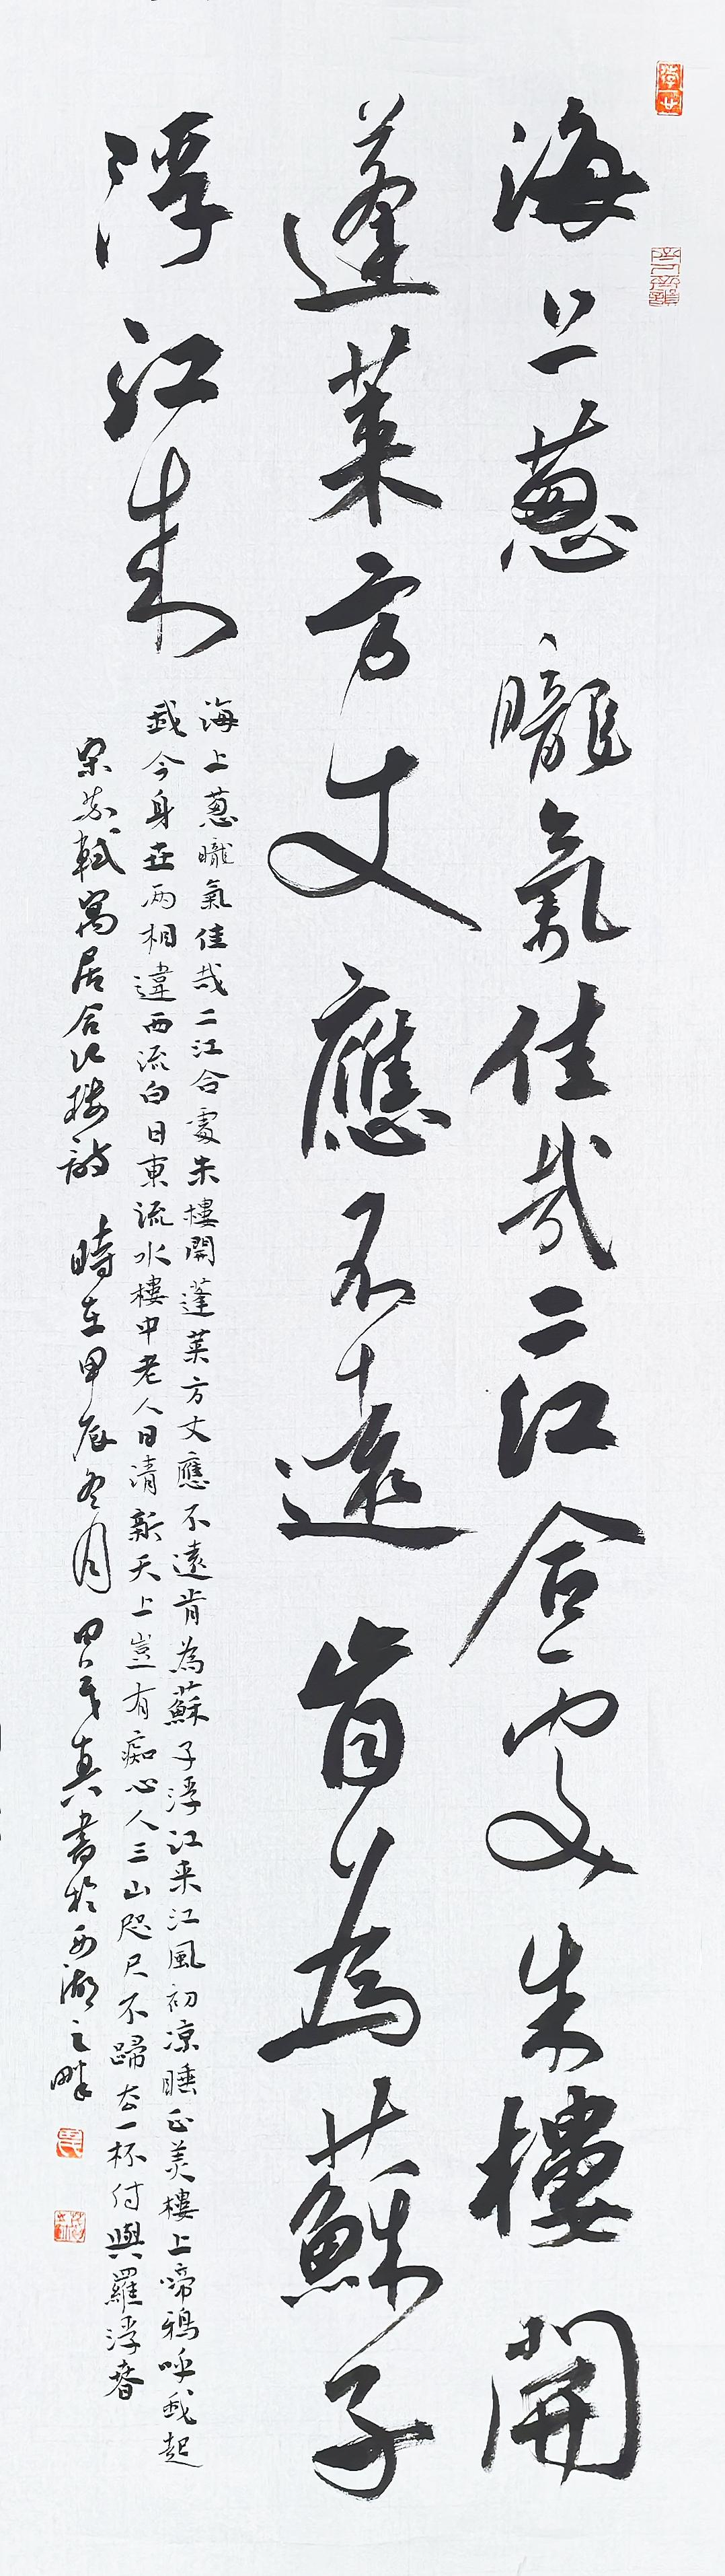 海上蔥曨氣佳哉二江合處朱樓開
蓬萊方丈應不遠肯為蘇子
浮江來
海上蔥曨氣佳哉二江合處朱樓開蓬萊方丈應不遠肯為蘇子浮江来江風初凉睡正美樓上啼鴉呼我起
我今身世兩相違西流白日東流水樓中老人日清新天上豈有痴心人三山咫尺不歸去一杯付與羅浮春
宋蘇軾寓居合江樓詩 時在甲辰冬月 真書於西湖之畔